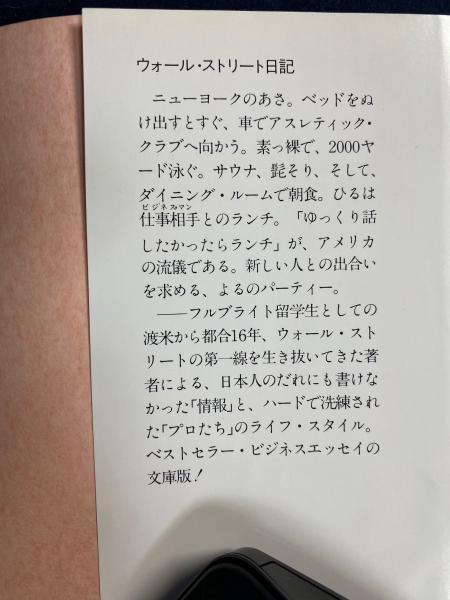 ウォール・ストリート日記
ニューヨークのあさ。ベッドをぬ
け出すとすぐ、車でアスレティック・
クラブへ向かう。素っ裸で、2000ヤ
ード泳ぐ。サウナ、髭そり、そして、
ダイニング・ルームで朝食。ひるは
ビジネスマン
仕事相手とのランチ。「ゆっくり話
したかったらランチ」が、アメリカ
の流儀である。新しい人との出合い
を求める、よるのパーティー。
――フルブライト留学生としての
渡米から都合16年、ウォール・スト
リートの第一線を生き抜いてきた著
者による、日本人のだれにも書けな
かった「情報」と、ハードで洗練され
た「プロたち」のライフ・スタイル。
ベストセラー・ビジネスエッセイの
文庫版!